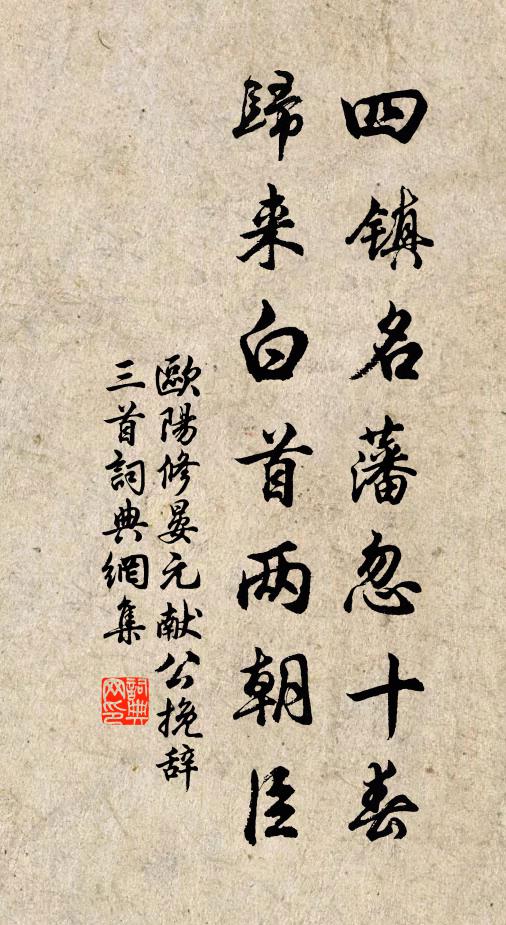 四镇名藩忽十春
歸来白首两朝臣
歐陽修晏元献公挽辞
三首詞典網集
詞典
网印